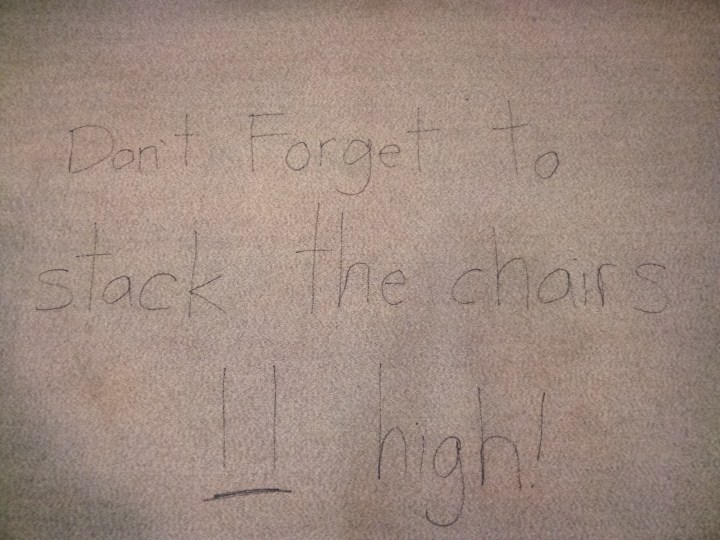 Don't Forget to
stack the chairs
11 high!